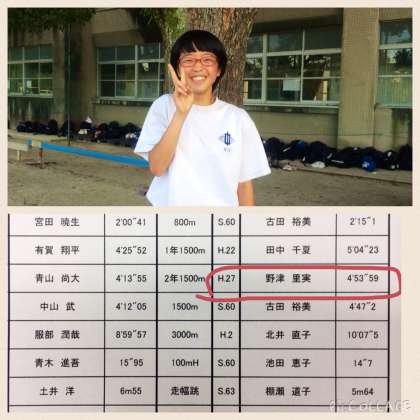 宮田 暁生 2'00"41 800m S.60 古田 裕美 2'15"1
有賀 翔平 4'25"52 1年1500m H.22 田中 千夏 5'04"23
青山 尚大 4'13"55 2年1500m H.27 野津 里実 4'53"59
中山 武 4'12"05 1500m S.60 古田 裕美 4'47"2
服部 潤哉 8'59"57 3000m H.2 北井 直子 10'07"5
青木 進吾 15"95 100mH S.60 池田 恵子 14"7
土井 洋 6m55 走幅跳 S.63 棚瀬 道子 5m64
PIC COLLAGE